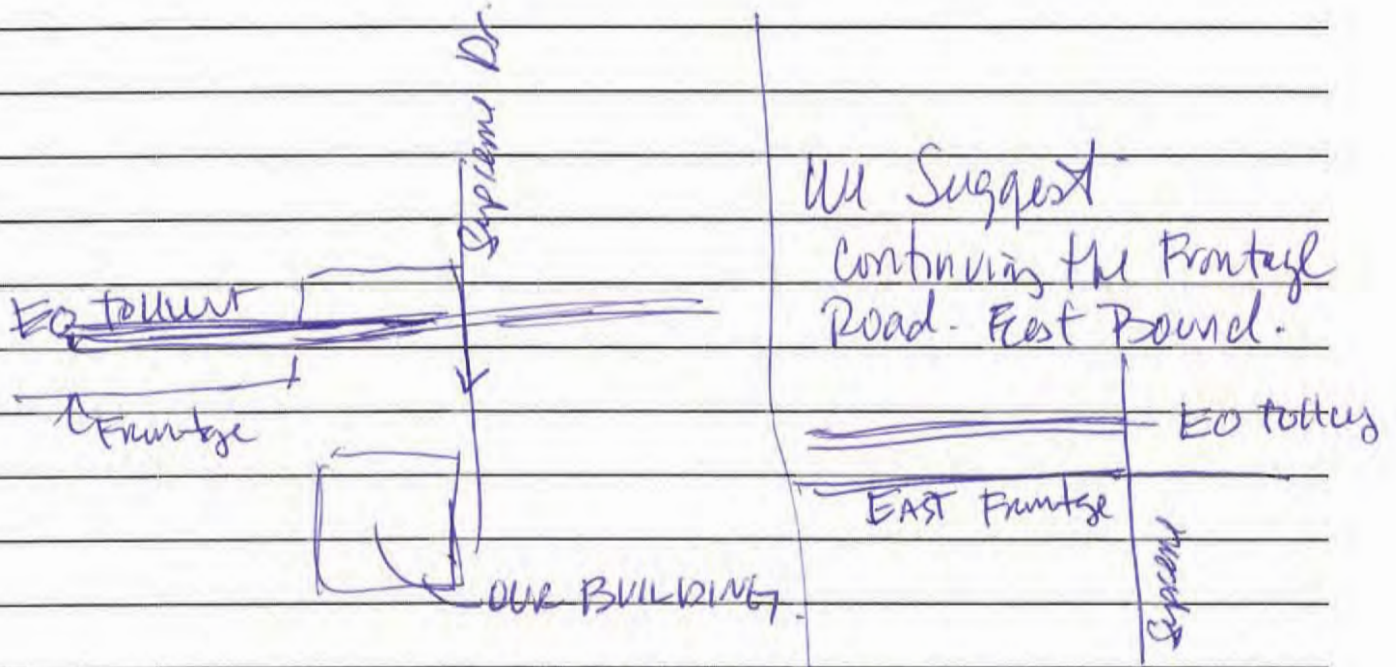 Supreme Dr.
EO tollway
Frontage
OUR BUILDING.
We Suggest
Continuing the Frontage
Road. East Bound.
EO tollway
EAST Frontage
Supreme